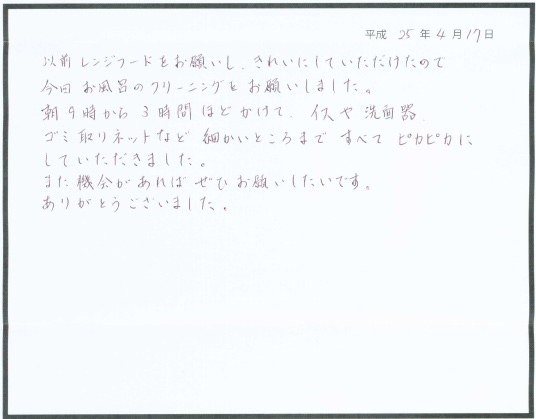 平成 25 年 4 月 17 日
以前 レンジフードをお願いし、きれいにしていただけたので
今回 お風呂のクリーニングをお願いしました。
朝9時から 3時間ほどかけて、イスや洗面器、
ゴミ取りネットなど 細かいところまで すべて ピカピカに
していただきました。
また機会があれば ぜひ お願いしたいです。
ありがとうございました。